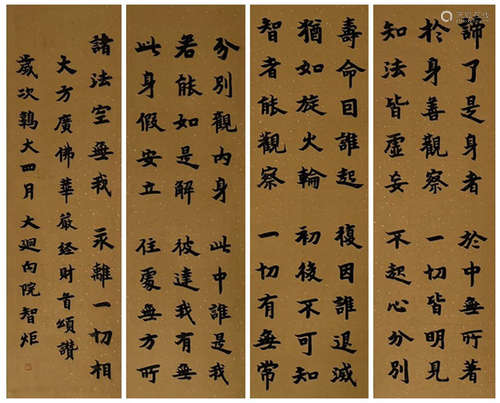 諦了是身者 於中無所著
於身善觀察 一切皆明見
知法皆虛妄 不起心分別
壽命因誰起 復因誰退滅
猶如旋火輪 初後不可知
智者能觀察 一切有無常
分別觀內身 此中誰是我
若能如是解 彼達我有無
此身假安立 住處無方所
諸法空無我 永離一切相
大方廣佛華嚴經財首頌讚
歲次鶉火四月 大迴向院智炬